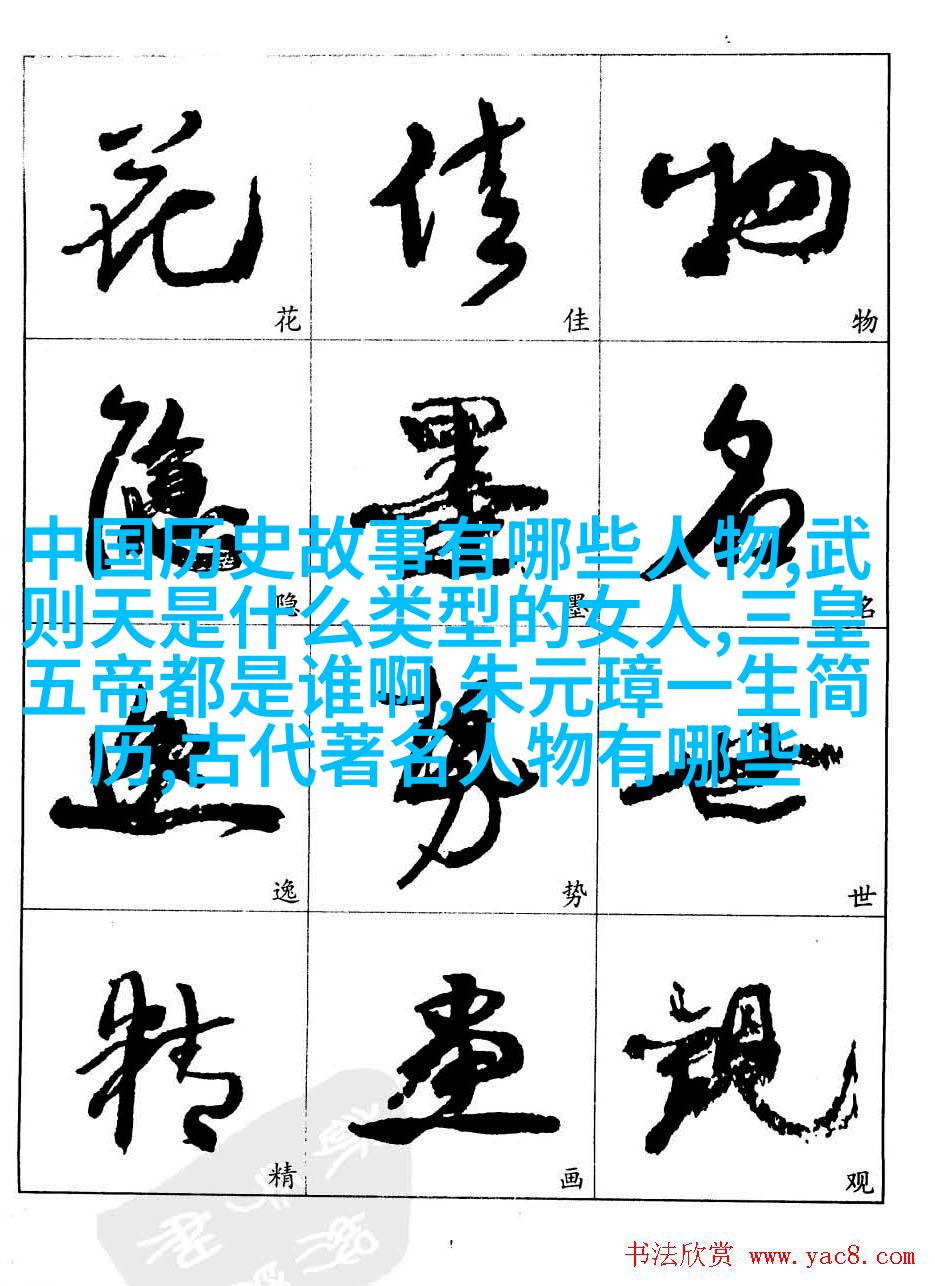 花 佳 物
花 佳 物
隐 墨 名
中国历史故事有哪些人物,武
则天是什么类型的女人,三皇
隐 墨 名
五帝都是谁啊,朱元璋一生简
历,古代著名人物有哪些
逸 势 世
逸 势 世
精 画 观
精 画 观
书法欣赏 www.yac8.com